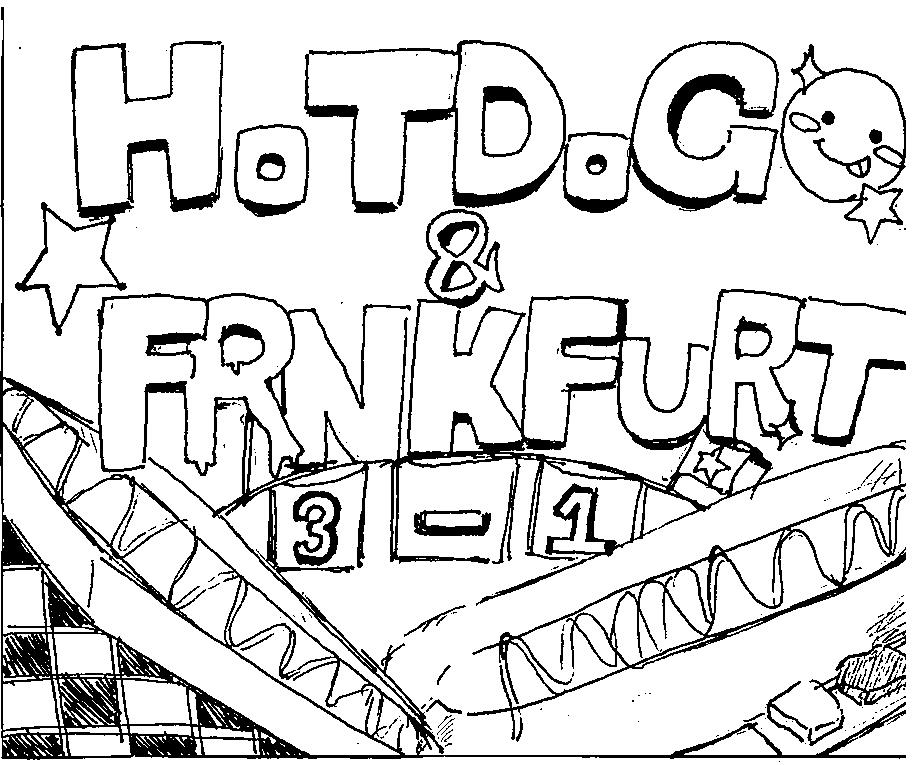 HoTDoG
&
FRNKFURT
3-1